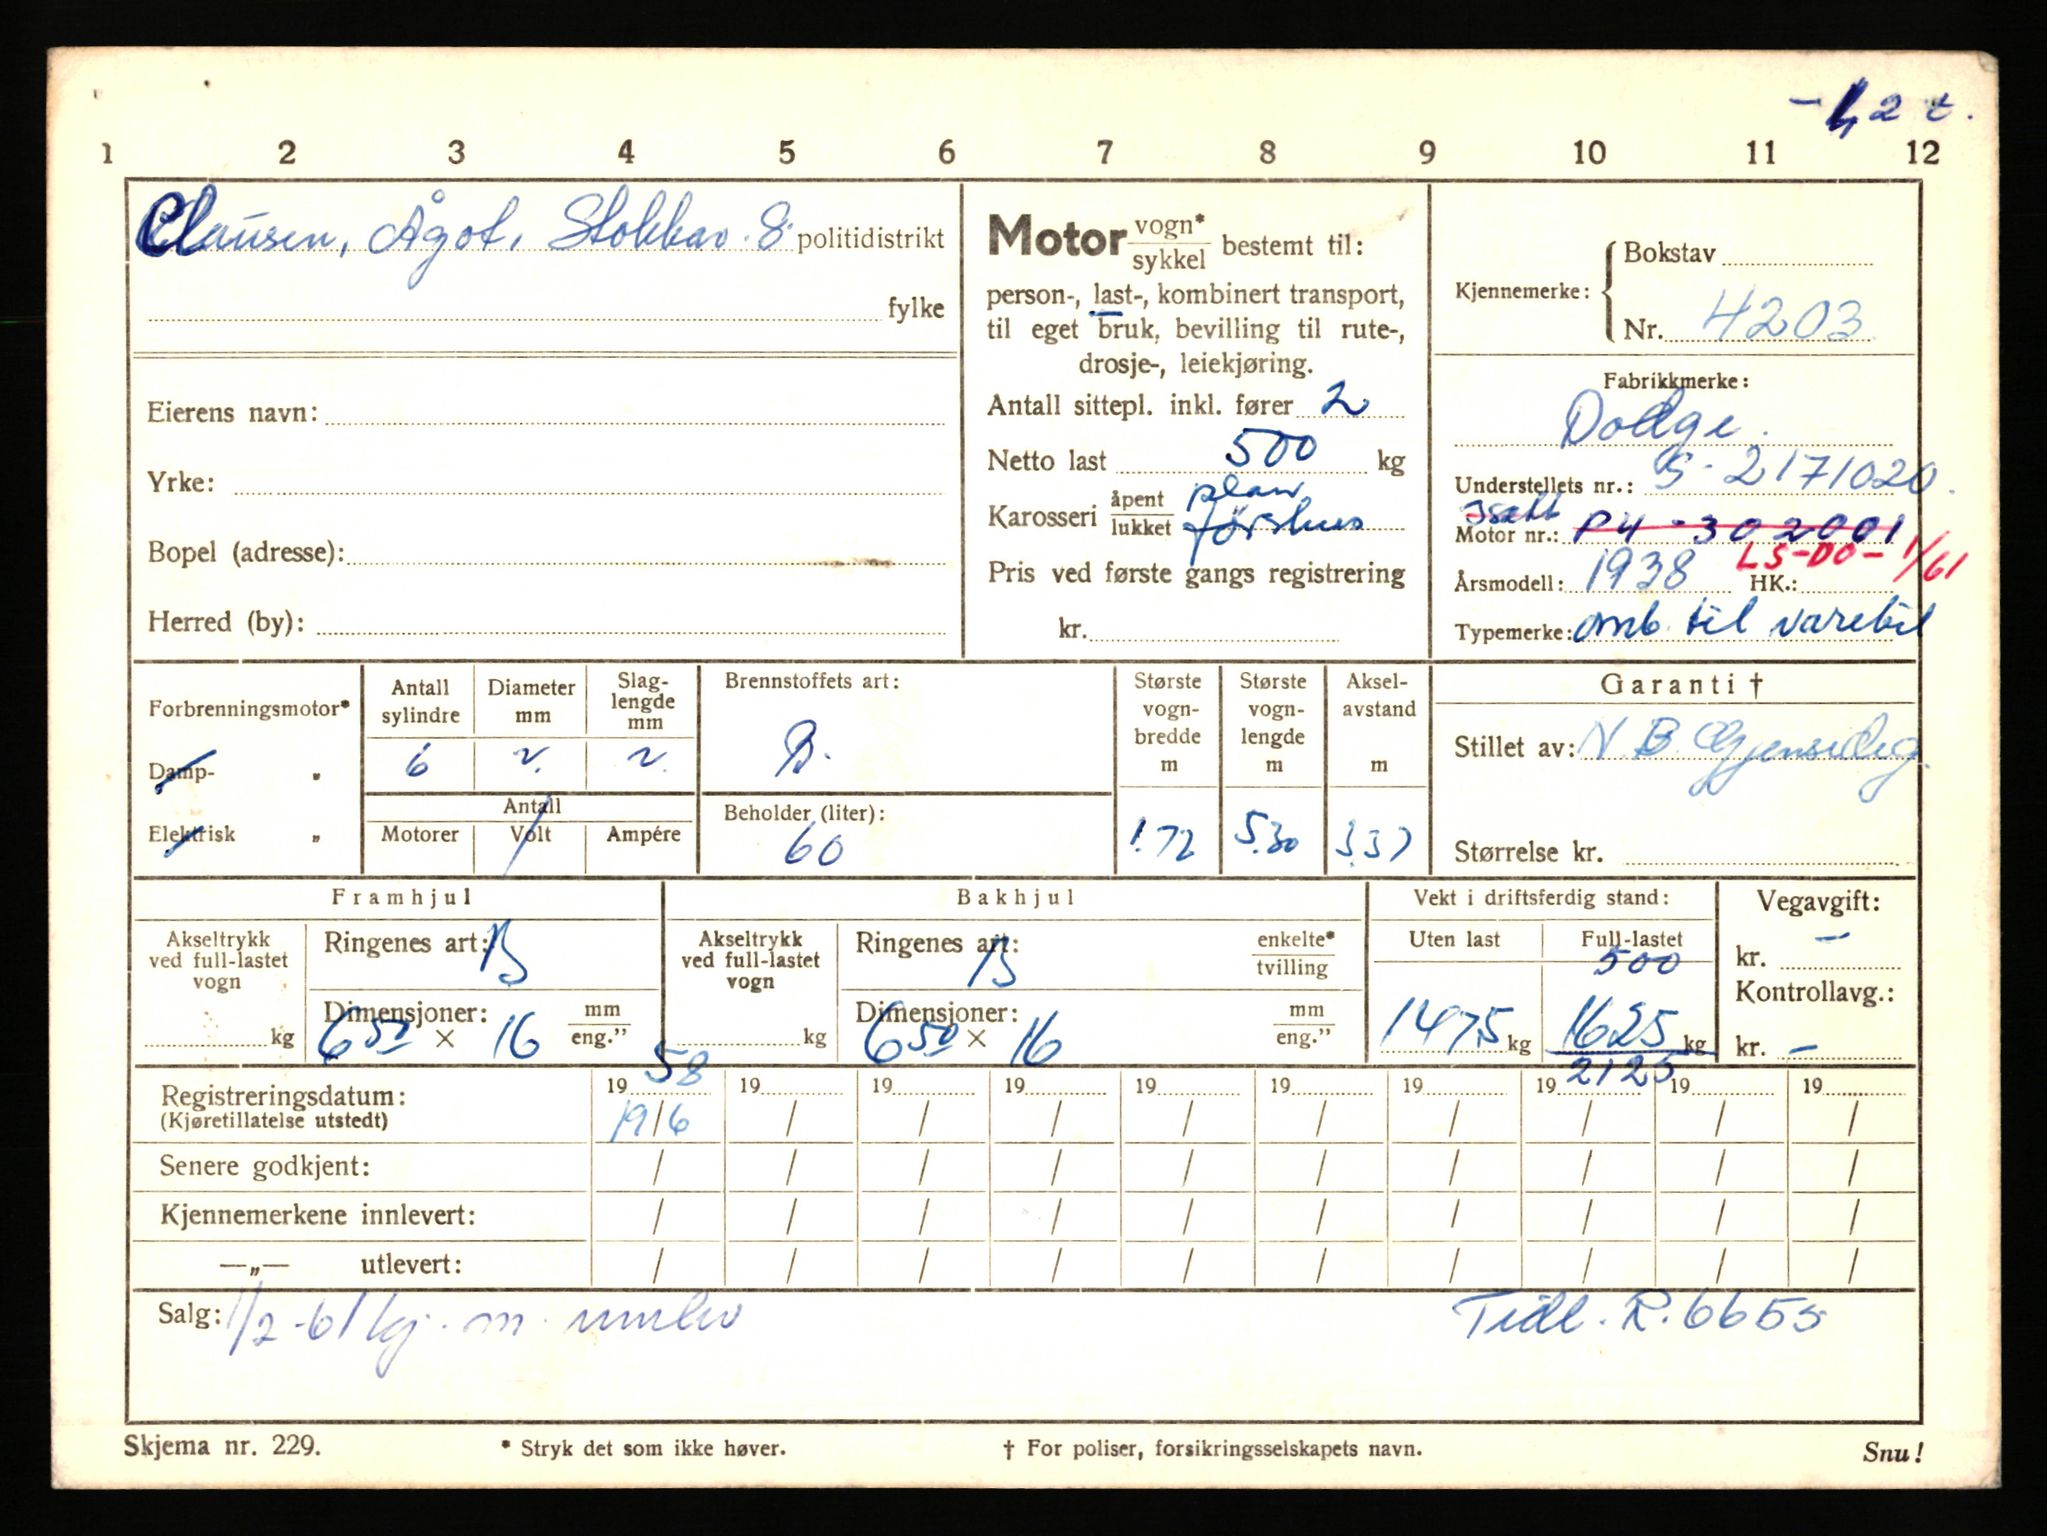 - 1,2 t.
1 2 3 4 5 6 7 8 9 10 11 12
Clausen, Ågot, Stokkav. 8. politidistrikt
fylke
Eierens navn:
Yrke:
Bopel (adresse):
Herred (by):
Motor vogn* sykkel bestemt til:
person-, last-, kombinert transport,
til eget bruk, bevilling til rute-,
drosje-, leiekjøring.
Antall sittepl. inkl. fører 2
Netto last 500 kg
Karosseri åpent lukket plan førerhus
Pris ved første gangs registrering
kr.
Kjennemerke: Bokstav
Nr. 4203
Fabrikkmerke:
Dodge.
Understellets nr.: S-2171020.
Isatt
Motor nr.: P4-302001
LS-DO- 1/61
Årsmodell: 1938 HK.:
Typemerke: omb. til varebil
Forbrenningsmotor*
Damp- „
Elektrisk „
Antall sylindre
6
Diameter mm
Slag-lengde mm
Antall
Motorer Volt Ampére
Brennstoffets art:
B.
Beholder (liter):
60
Største vogn-bredde m
1.72
Største vogn-lengde m
5.30
Aksel-avstand m
3.37
Garanti †
Stillet av: N. B. Gjensidig.
Størrelse kr.
Framhjul
Akseltrykk ved full-lastet vogn
kg
Ringenes art: B
Dimensjoner: mm eng.”
650 × 16
Bakhjul
Akseltrykk ved full-lastet vogn
kg
Ringenes art: B
enkelte* tvilling
Dimensjoner: mm eng.”
650 × 16
Vekt i driftsferdig stand:
Uten last
1475 kg
Full-lastet
500
1625 kg
2125
Vegavgift:
kr. -
Kontrollavg.:
kr. -
Registreringsdatum: 19 58 19 19 19 19 19 19 19 19 19
(Kjøretillatelse utstedt) 19/6 / / / / / / / / /
Senere godkjent: / / / / / / / / / /
Kjennemerkene innlevert: / / / / / / / / / /
—„— utlevert: / / / / / / / / / /
Salg: 1/2-61 kj. m. innlev
Tidl. R. 6655
Skjema nr. 229.
* Stryk det som ikke høver.
† For poliser, forsikringsselskapets navn.
Snu!